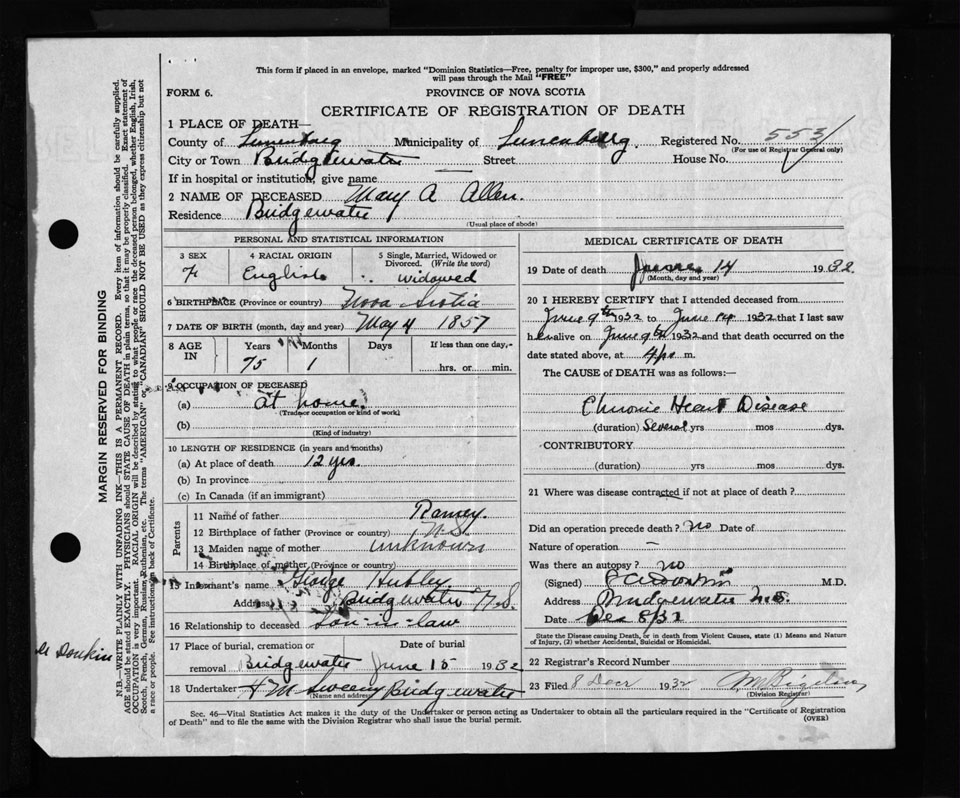 This form if placed in an envelope, marked "Dominion Statistics—Free, penalty for improper use, $300," and properly addressed
will pass through the Mail "FREE"
FORM 6.
PROVINCE OF NOVA SCOTIA
CERTIFICATE OF REGISTRATION OF DEATH
1 PLACE OF DEATH—
County of Lunenburg Municipality of Lunenburg. Registered No. 553
(For use of Registrar General only)
City or Town Bridgewater Street House No.
If in hospital or institution, give name
2 NAME OF DECEASED Mary A Allen.
Residence Bridgewater
(Usual place of abode)
PERSONAL AND STATISTICAL INFORMATION
3 SEX 4 RACIAL ORIGIN 5 Single, Married, Widowed or Divorced. (Write the word)
F English widowed
6 BIRTHPLACE (Province or country) Nova Scotia
7 DATE OF BIRTH (month, day and year) May 4 1857
8 AGE IN Years Months Days If less than one day,-
75 1 hrs. or min.
9 OCCUPATION OF DECEASED
(a) at home.
(Trade or occupation or kind of work)
(b)
(Kind of industry)
10 LENGTH OF RESIDENCE (in years and months)
(a) At place of death 12 yrs.
(b) In province
(c) In Canada (if an immigrant)
Parents
11 Name of father Ramey.
12 Birthplace of father (Province or country) N.S.
13 Maiden name of mother unknown
14 Birthplace of mother (Province or country)
15 Informant's name George Hubley
Address Bridgewater N.S.
16 Relationship to deceased Son-in-law
17 Place of burial, cremation or removal Bridgewater Date of burial June 15 1932
18 Undertaker H M Sweeny Bridgewater
(Name and address)
MEDICAL CERTIFICATE OF DEATH
19 Date of death June 14 1932
(Month, day and year)
20 I HEREBY CERTIFY that I attended deceased from
June 9th 1932 to June 14 1932 that I last saw
her alive on June 9th 1932 and that death occurred on the
date stated above, at 4 p. m.
The CAUSE of DEATH was as follows:—
Chronic Heart Disease
(duration) Several yrs mos dys.
CONTRIBUTORY
(duration) yrs mos dys.
21 Where was disease contracted if not at place of death?
Did an operation precede death? no Date of
Nature of operation —
Was there an autopsy? no
(Signed) M.D.
Address Bridgewater N.S.
Date Dec 8/32
State the Disease causing Death, or in death from Violent Causes, state (1) Means and Nature
of Injury, (2) whether Accidental, Suicidal or Homicidal.
22 Registrar's Record Number
23 Filed 8 Decr 1932
(Division Registrar)
Sec. 46—Vital Statistics Act makes it the duty of the Undertaker or person acting as Undertaker to obtain all the particulars required in the "Certificate of Registration
of Death" and to file the same with the Division Registrar who shall issue the burial permit.
(OVER)
MARGIN RESERVED FOR BINDING
N.B.—WRITE PLAINLY WITH UNFADING INK—THIS IS A PERMANENT RECORD. Every item of information should be carefully supplied.
AGE should be stated EXACTLY. PHYSICIANS should STATE CAUSE OF DEATH in plain terms, so that it may be properly classified. Exact statement of
OCCUPATION is very important. RACIAL ORIGIN will be described by stating to what people or race the deceased person belonged, whether English, Irish,
Scotch, French, German, Russian, Ruthenian, etc. The terms "AMERICAN" or "CANADIAN" SHOULD NOT BE USED as they express citizenship but not
a race or people. See instructions on back of Certificate.
Donkin